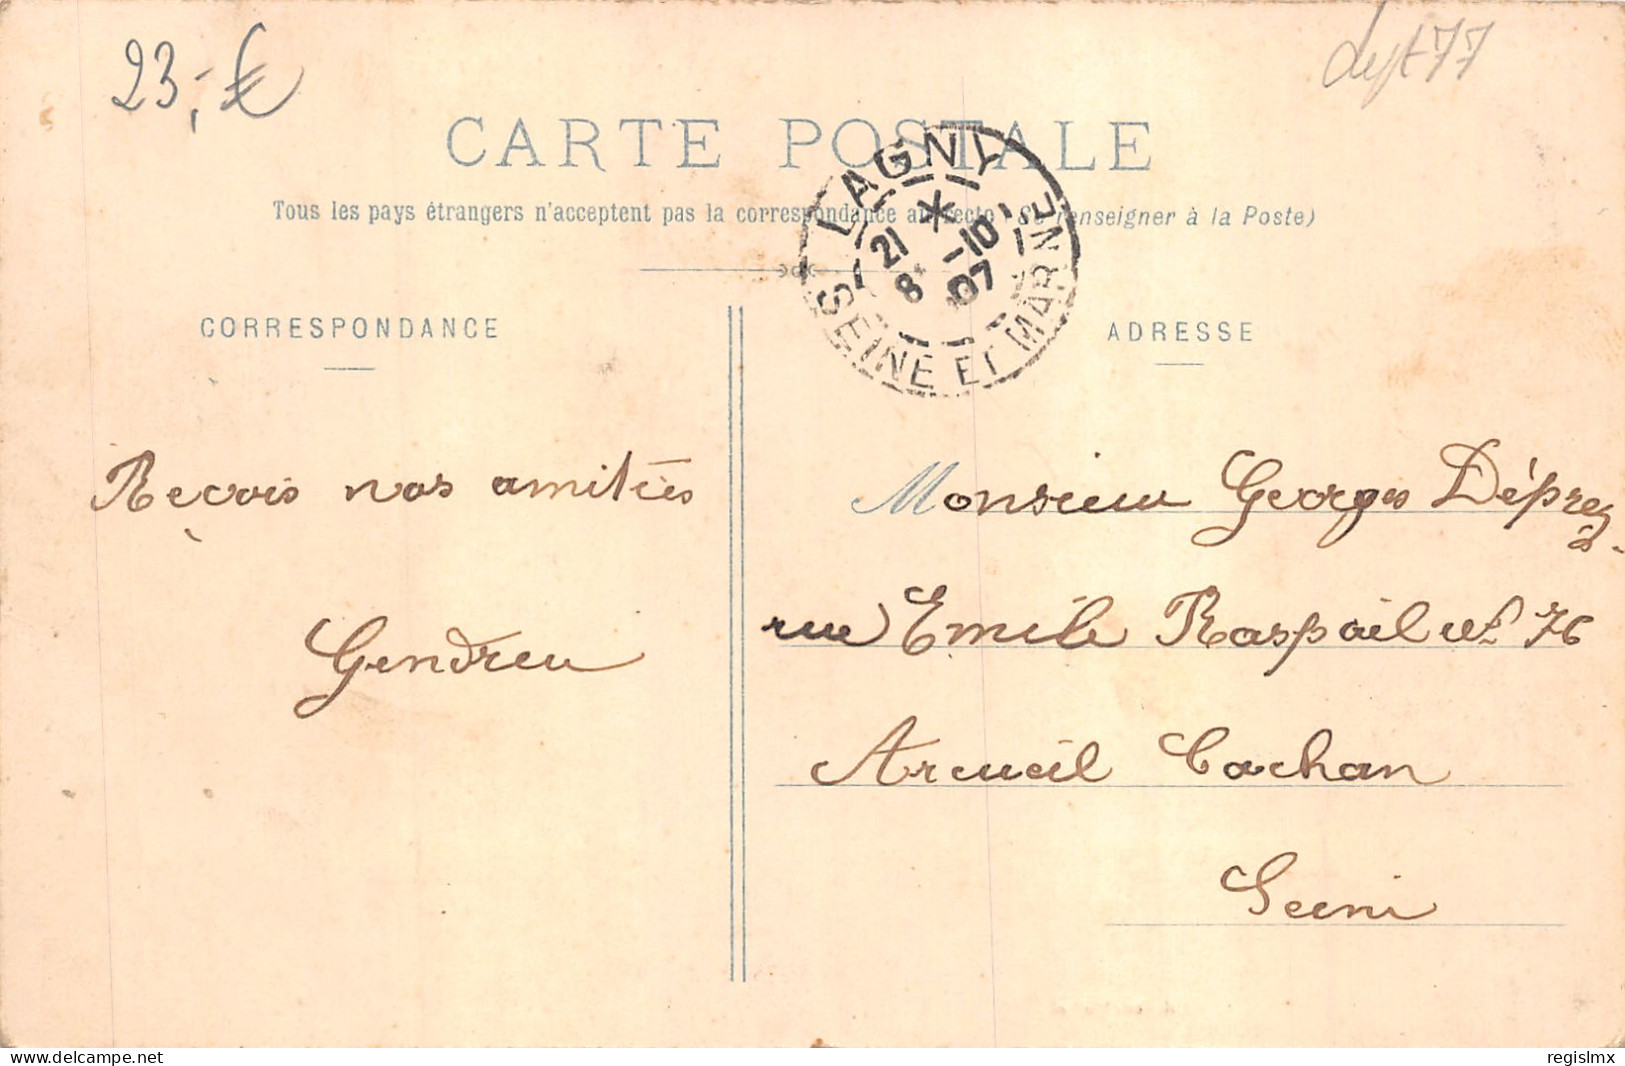 23,-€
dept 77
CARTE POSTALE
Tous les pays étrangers n'acceptent pas la correspondance au recto (Se renseigner à la Poste)
LAGNY
21 -10
8* 07
SEINE ET MARNE
CORRESPONDANCE
ADRESSE
Reçois nos amitiés
Gendreu
Monsieur Georges Déprez
rue Emile Raspail 76
Arcueil Cachan
Seine
www.delcampe.net
regislmx